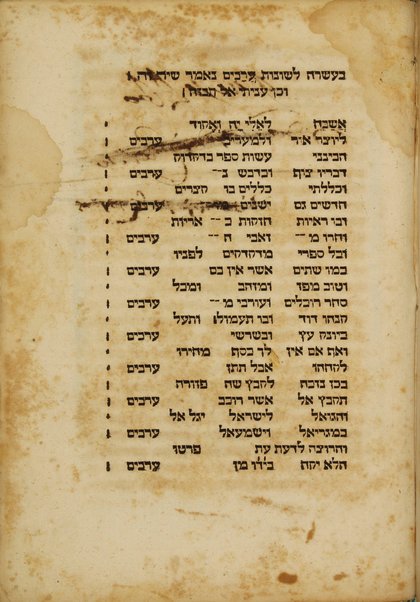 בעשרה לשונות ערבים נאמר שיר
וכן עניתי אל
אשבח לאלי יה ואקוד
ליוצר אור ולמעריב ערבים
הביננו עשות ספר בדקדוק
דבריו צוף ודבש ערבים
וכללתי כללים בו קצרים
חדשים גם ישנים ערבים
ובו ראיות חזקות כ -- אריות
וחרו מ -- ואבי ה -- ערבים
ובל ספרי מדקדקים לפניו
כמו שתים אשר אין בם ערבים
וטוב מפז ומזהב ומכל
סחר רוכלים ועורבי מ -- ערבים
קנהו דוד ובו תעמול ותעל
ביונק עץ ובשרשי ערבים
ואף אם אין לך כסף מחירו
לקחהו אבל תתן ערבים
בכן נזכה לקבץ שה פזורה
תקבץ אל אשר רוכב ערבים
והגואל לישראל יגל אל
במגריאל וישמעאל ערבים
והרוצה לדעת עת פרטו
הלא יקח בידו מן ערבים